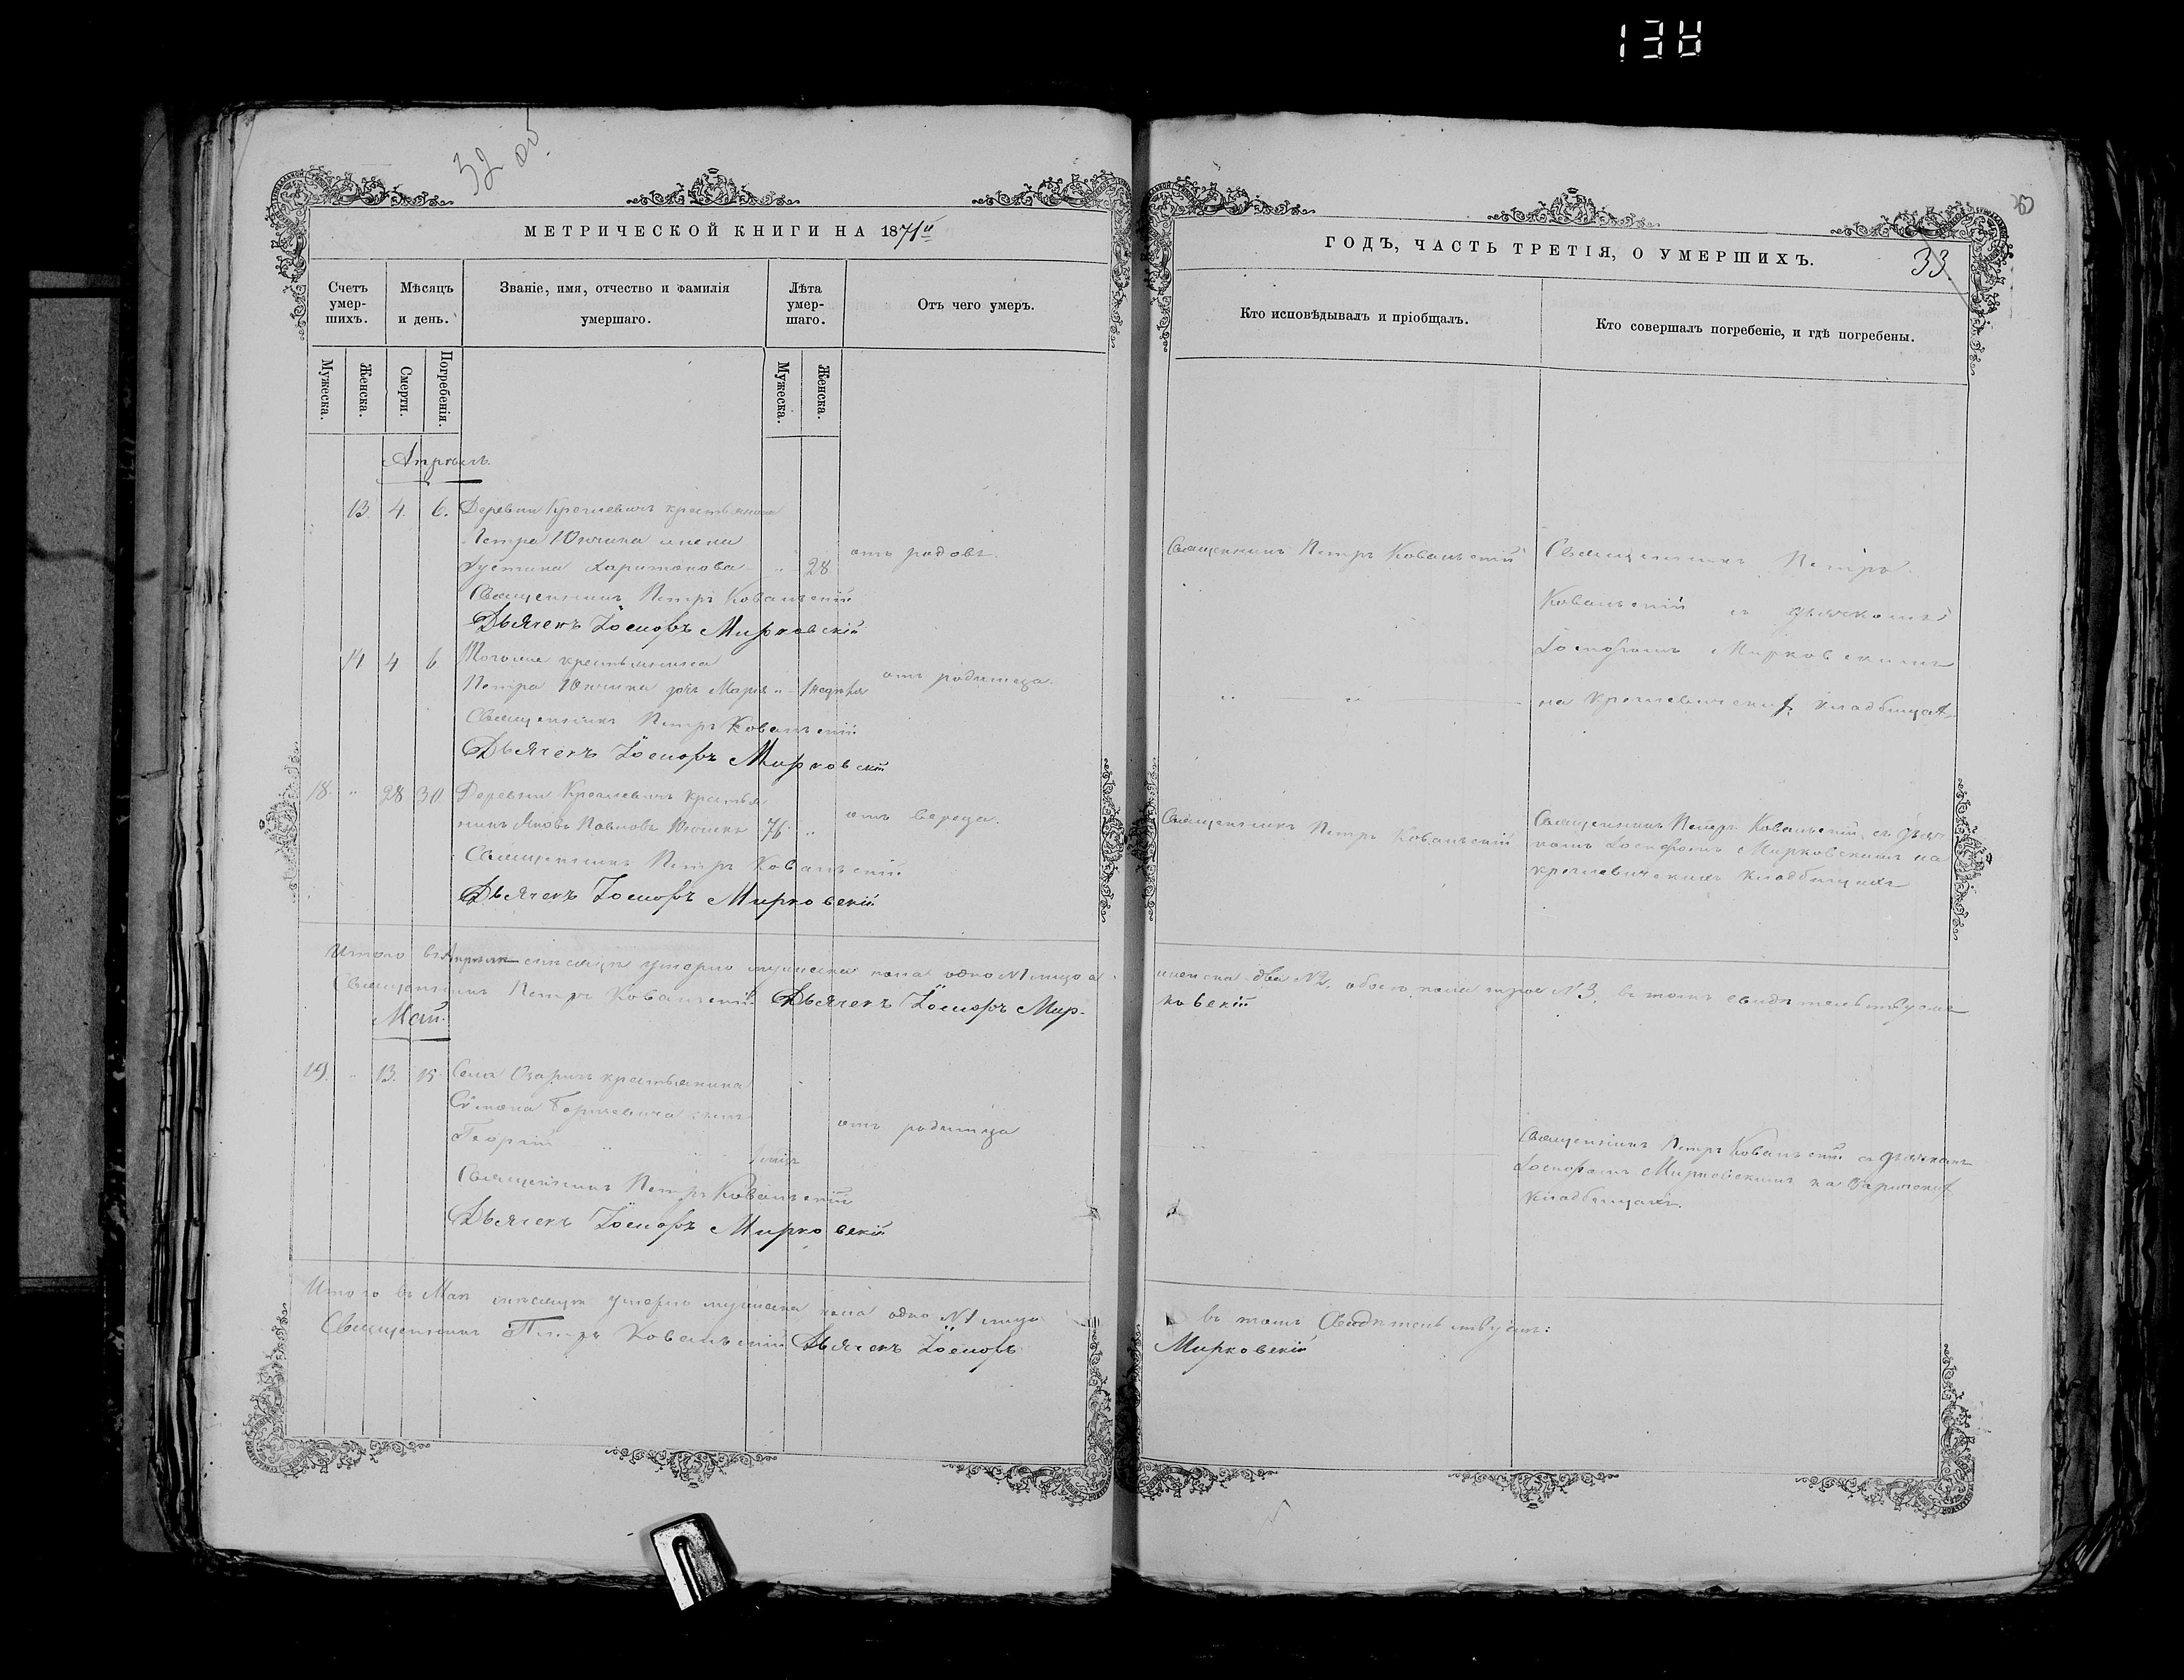 138
32 об.
МЕТРИЧЕСКОЙ КНИГИ НА 1871й
Счетъ умер-шихъ.
Мѣсяцъ и день.
Званіе, имя, отчество и фамилія умершаго.
Лѣта умер-шаго.
Отъ чего умеръ.
Мужеска.
Женска.
Смерти.
Погребенія.
Мужеска.
Женска.
Апрѣль.
13. 4. 6. Деревни крестьянина
Петра Юнчика жена
Харитонова " 28 отъ родовъ.
Священникъ Петръ Ковальскій
Дьячекъ Іосифъ Мирковскій
14 4 6 крестьянина
Петра Юнчика дочь Марія " 1 недѣля отъ родимца.
Священникъ Петръ Ковальскій
Дьячекъ Іосифъ Мирковскій
18. " 28 30 Деревни крестья
нинъ Яковъ Павловъ Юнчикъ 76 " отъ вереда.
Священникъ Петръ Ковальскій
Дьячекъ Іосифъ Мирковскій
Итого въ Апрѣлѣ мѣсяцѣ умерло мужеска пола одно №1 лицо а
Священникъ Петръ Ковальскій Дьячекъ Іосифъ Мир-
Май.
19. " 13. 15. Села Озаричъ крестьянина
Симона сынъ
Георгій отъ родимца
Священникъ Петръ Ковальскій
Дьячекъ Іосифъ Мирковскій
Итого въ Маѣ мѣсяцѣ умерло мужеска пола одно №1 лицо
Священникъ Петръ Ковальскій Дьячекъ Іосифъ
ГОДЪ, ЧАСТЬ ТРЕТІЯ, О УМЕРШИХЪ.
33
Кто исповѣдывалъ и пріобщалъ.
Кто совершалъ погребеніе, и гдѣ погребены.
Священникъ Петръ Ковальскій
Священникъ Петръ
Ковальскій съ дьячкомъ
Іосифомъ Мирковскимъ
на кладбищахъ
" "
Священникъ Петръ Ковальскій
Священникъ Петръ Ковальскій съ дьяч-
комъ Іосифомъ Мирковскимъ на
кладбищахъ
женска два №2, обоего пола трое №3, въ томъ свидѣтельствуемъ
ковскій
Священникъ Петръ Ковальскій съ дьячкомъ
Іосифомъ Мирковскимъ на
кладбищахъ.
въ томъ свидѣтельствуемъ:
Мирковскій